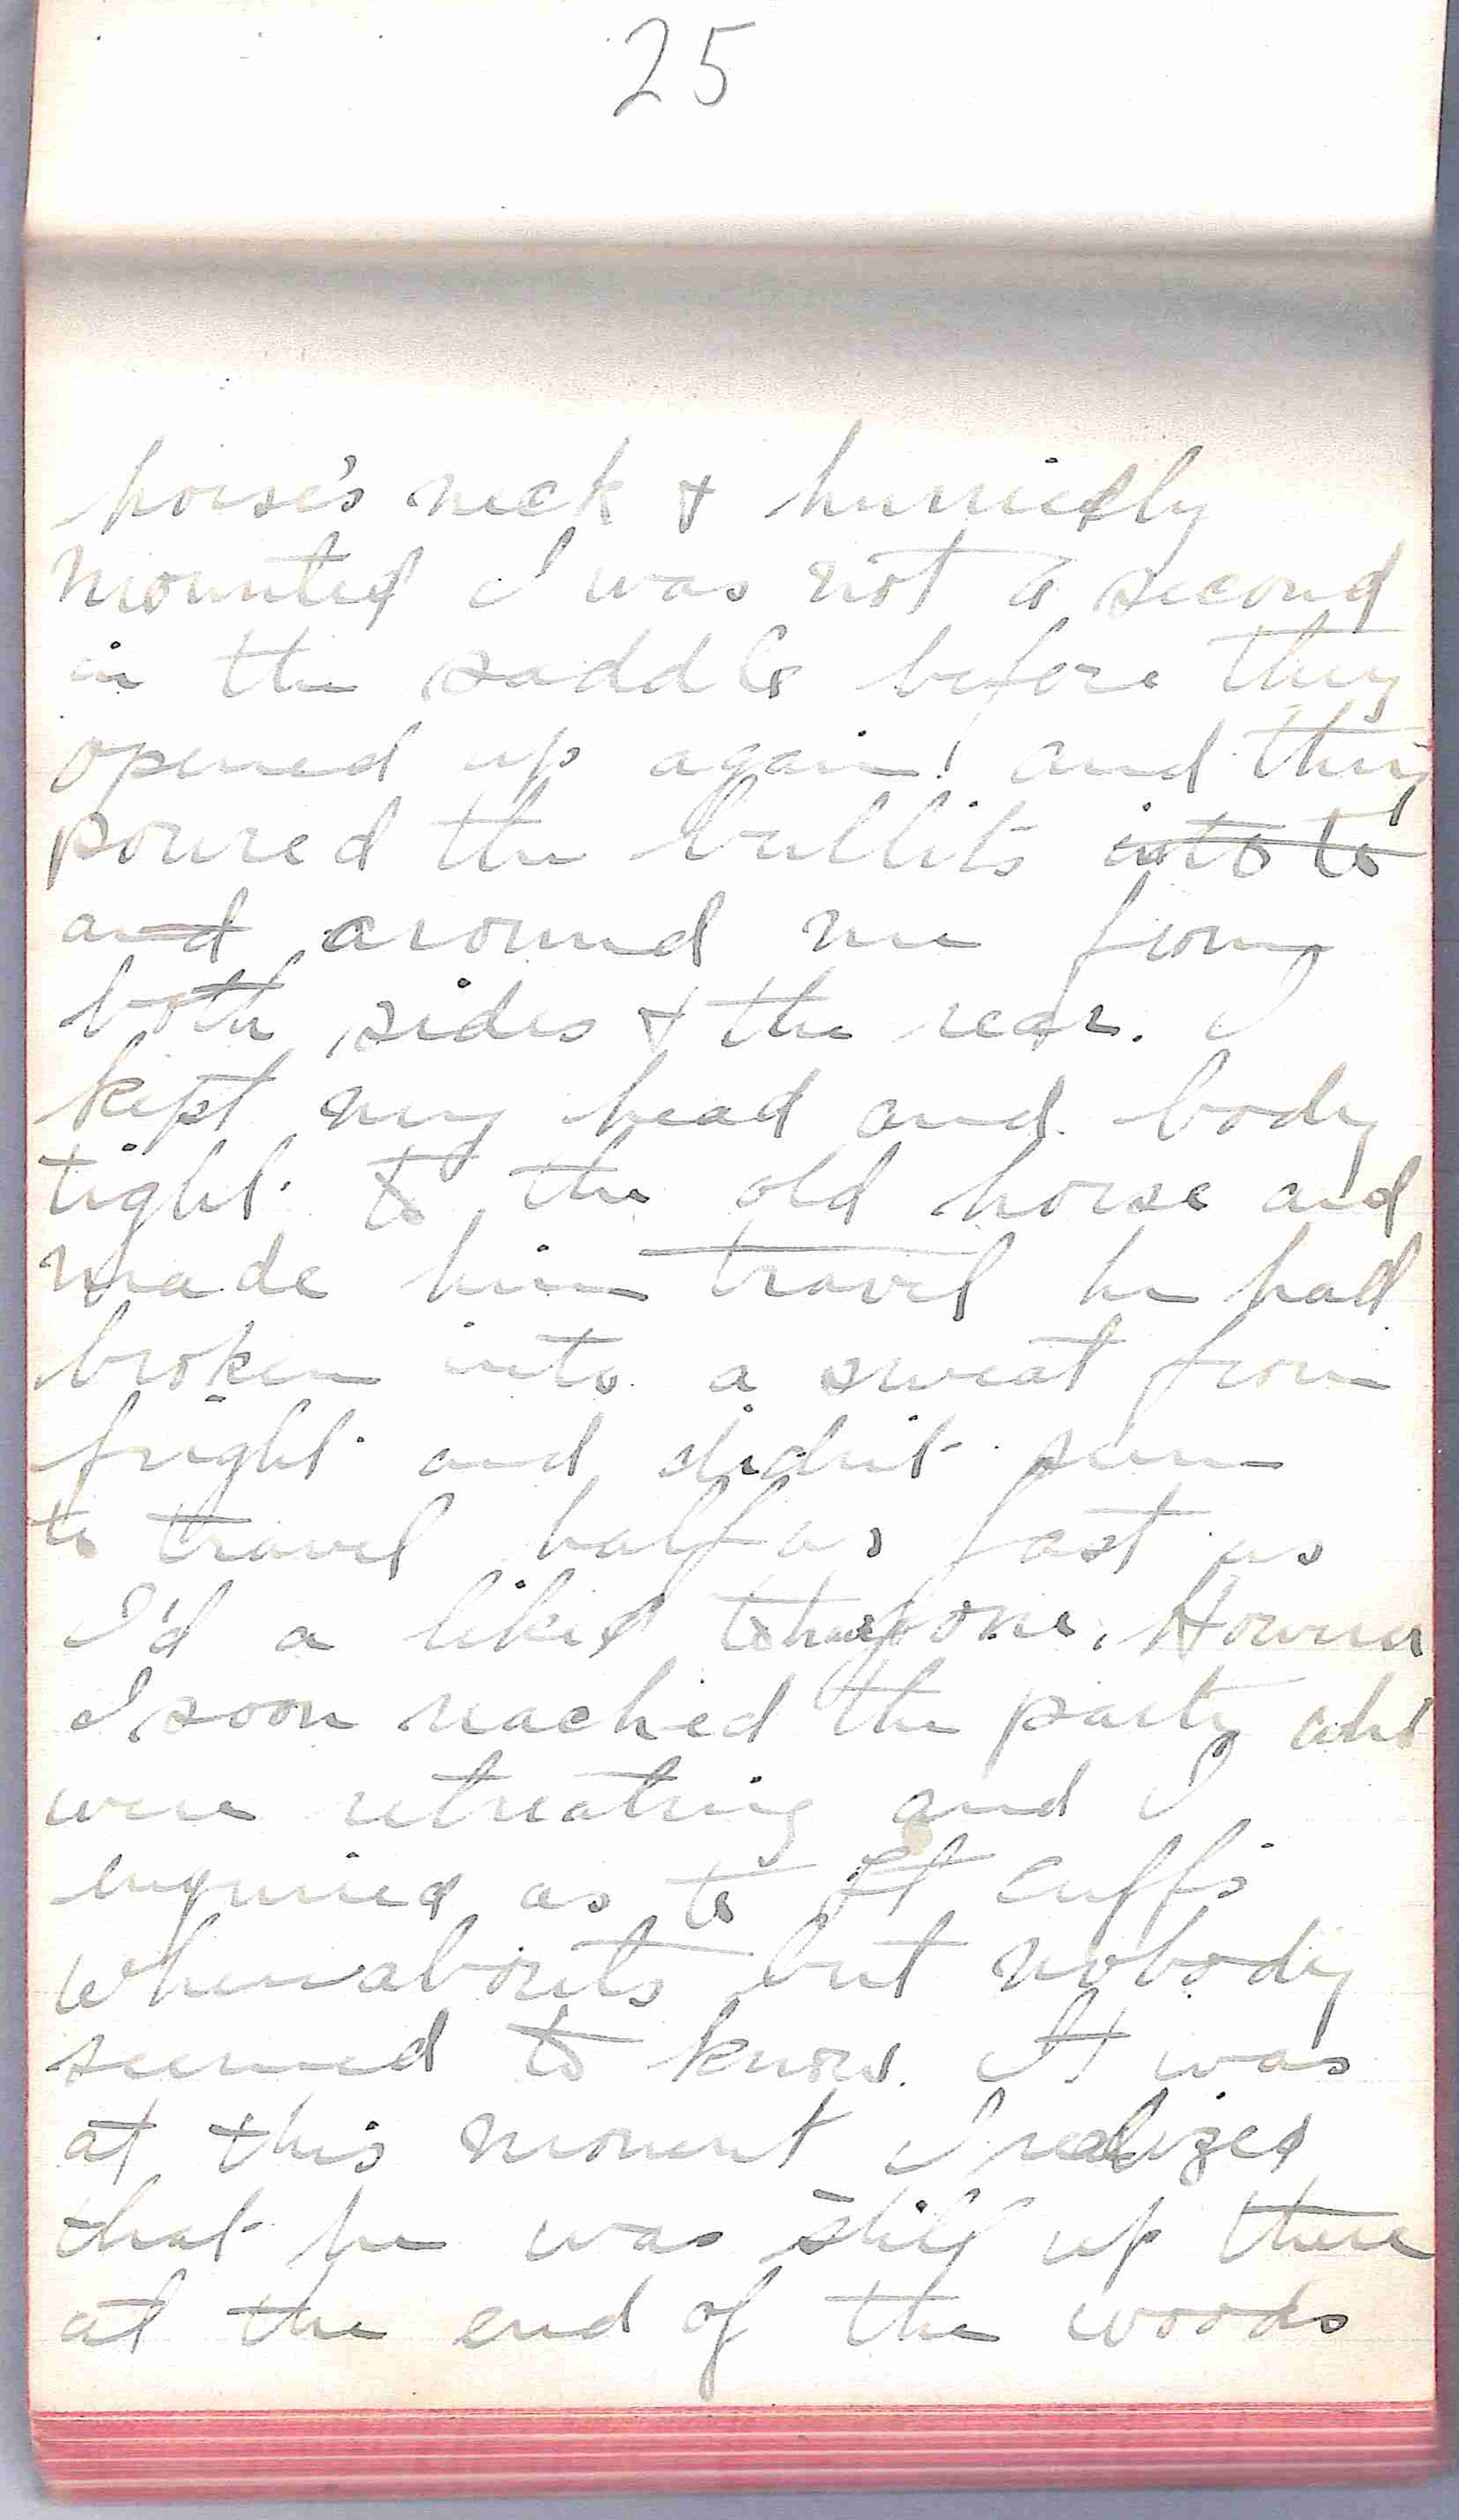 25
horse's neck & hurriedly
mounted I was not a second
in the saddle before they
opened up again! and they
poured the bullits into to
and around me from
both sides & the rear. I
kept my head and body
tight to the old horse and
made him travel he had
broken into a sweat from
fright and didn't seem
to travel half as fast as
I'd a liked to have gone. However
I soon reached the party who
were retreating and I
enquired as to Lt Cuffs
whereabouts but nobody
seemed to know. It was
at this moment I realized
that he was still up there
at the end of the woods